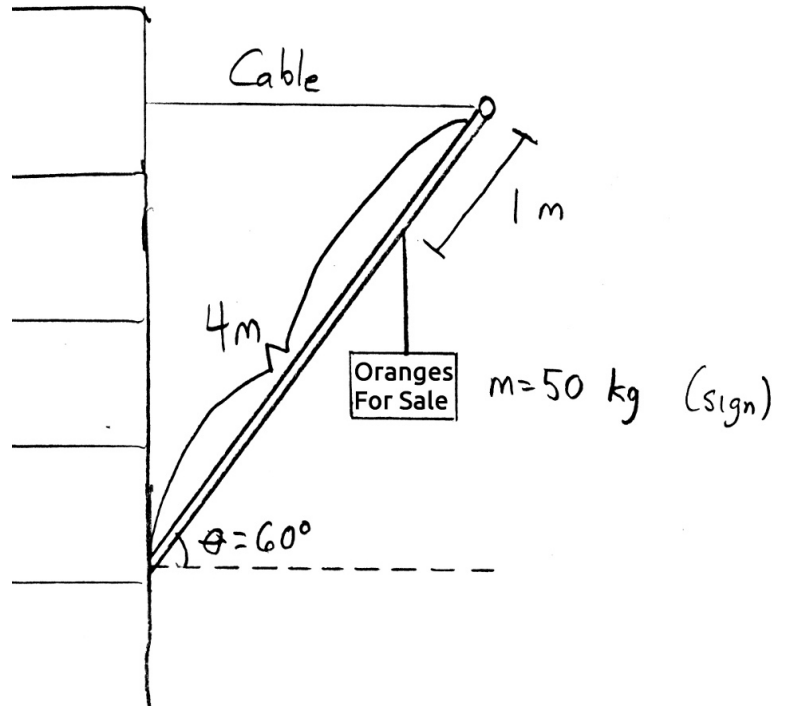 Cable
1 m
4m
Oranges
For Sale
m=50 kg (sign)
θ=60°